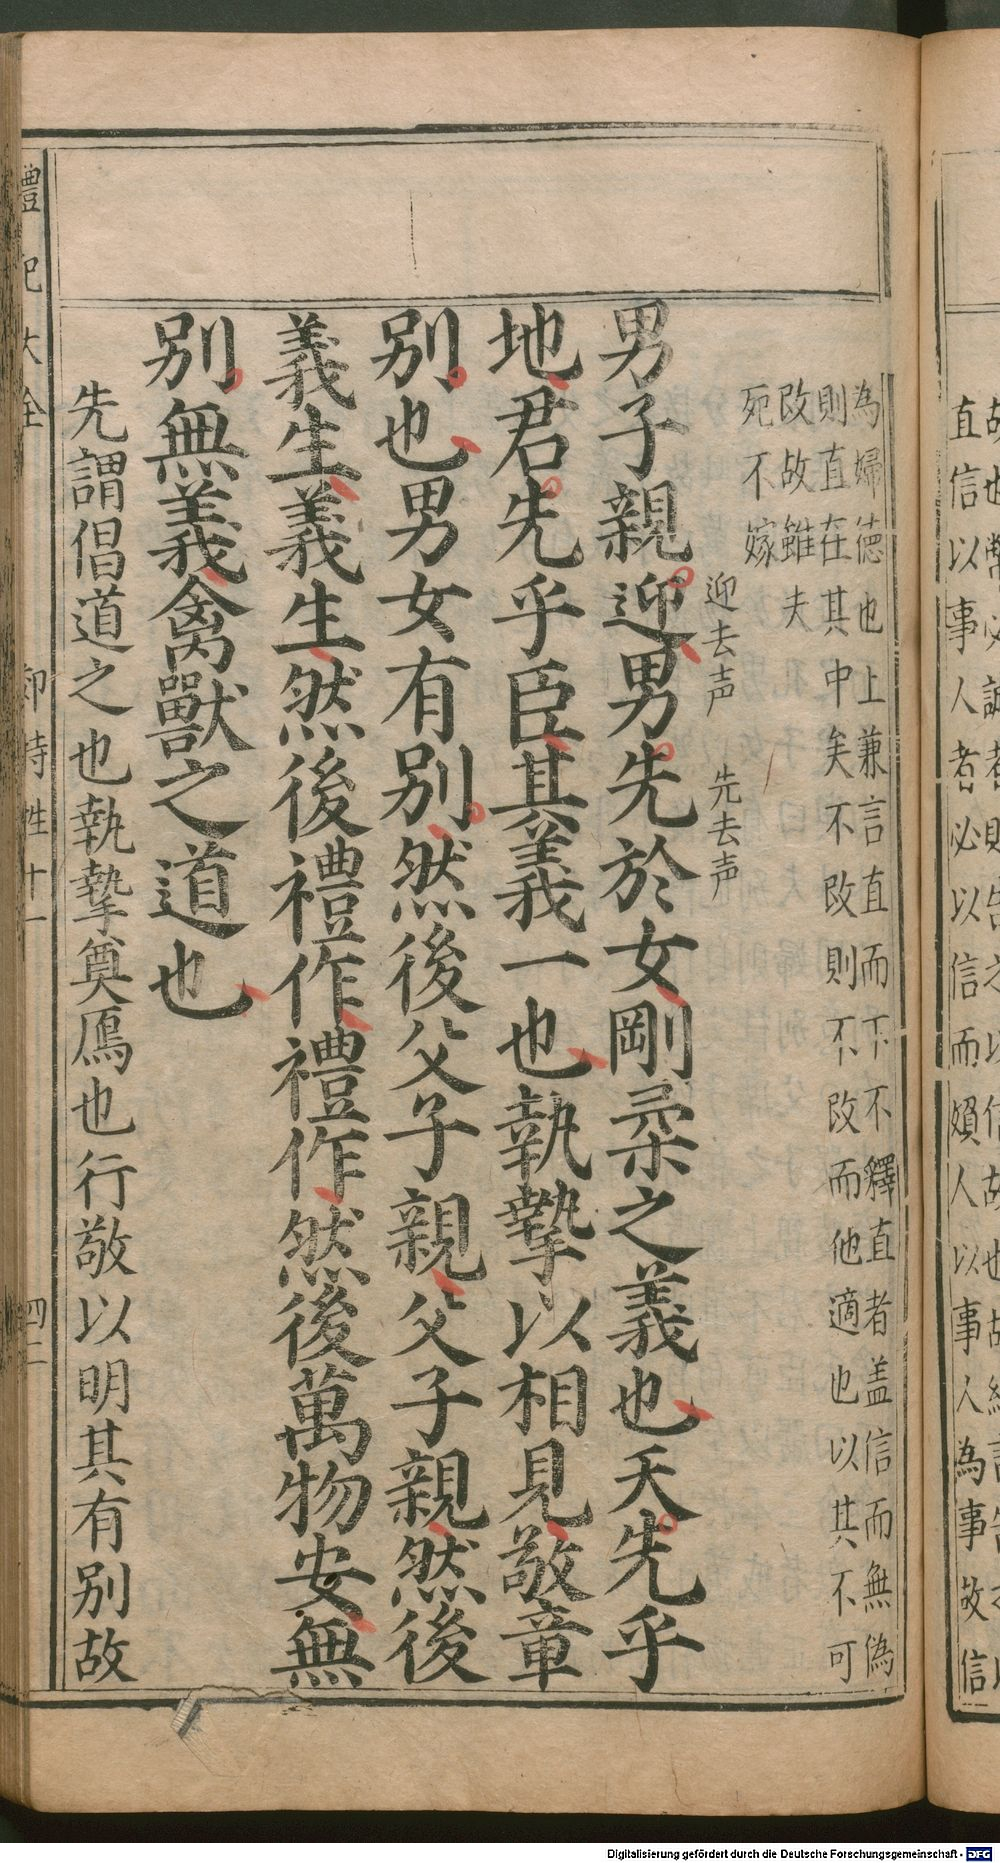 直信以事人者必以信而頻人以事人為事故信
為婦德也上兼言直而下不釋直者盖信而無偽
則直在其中矣不改則不改而他適也以其不可
改故雖夫
死不嫁
迎去声 先去声
男子親迎男先於女剛柔之義也天先乎
地君先乎臣其義一也執摯以相見敬章
別也男女有別然後父子親父子親然後
義生義生然後禮作禮作然後萬物安無
別無義禽獸之道也
先謂倡道之也執摯奠鴈也行敬以明其有别故
禮記大全
郊特牲十一
四二
Digitalisierung gefördert durch die Deutsche Forschungsgemeinschaft - DFG